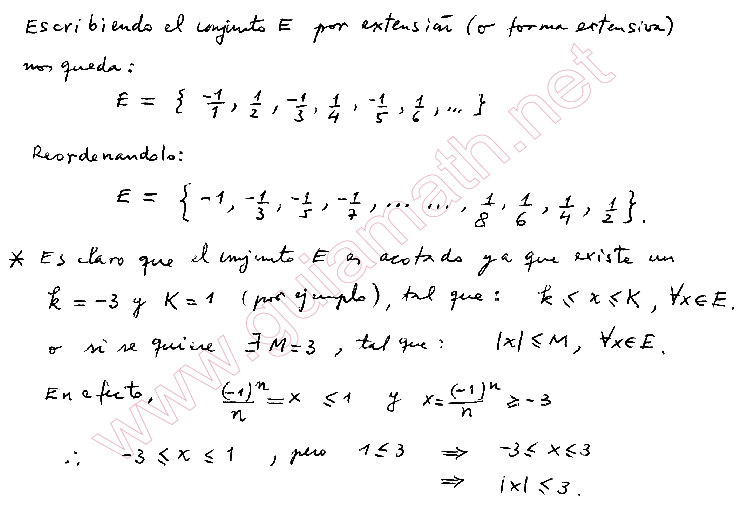 Escribiendo el conjunto E por extensión (o forma extensiva)
nos queda:
E = { -1/1, 1/2, -1/3, 1/4, -1/5, 1/6, ... }
Reordenandolo:
E = { -1, -1/3, -1/5, -1/7, ... ..., 1/8, 1/6, 1/4, 1/2 }.
* Es claro que el conjunto E es acotado ya que existe un
k = -3 y K = 1 (por ejemplo), tal que: k ≤ x ≤ K, ∀x∈E.
o si se quiere ∃ M=3, tal que: |x| ≤ M, ∀x∈E.
En efecto, (-1)^n/n = x ≤ 1 y x = (-1)^n/n ≥ -3
∴ -3 ≤ x ≤ 1, pero 1 ≤ 3 ⇒ -3 ≤ x ≤ 3
⇒ |x| ≤ 3.
www.guiamath.net